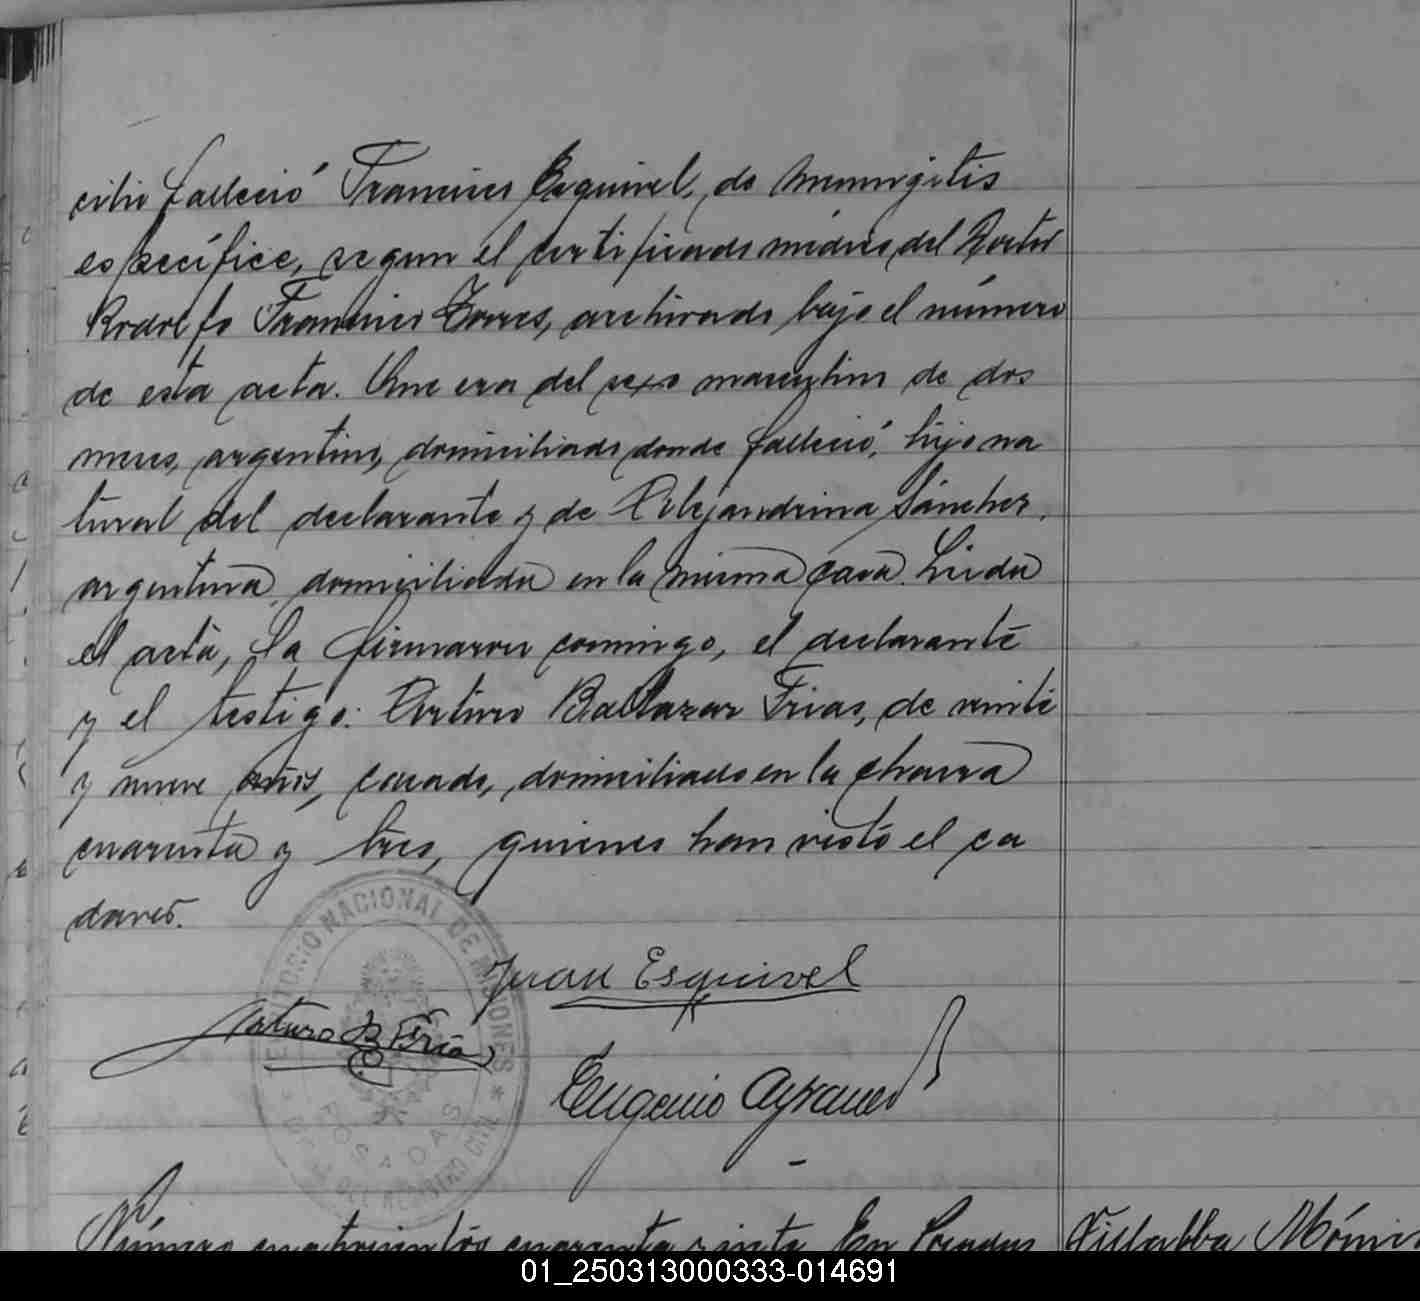 cilio falleció Francisco Esquivel, de meningitis
específica, segun el certificado médico del Doctor
Rodolfo Francisco Torres, archivado bajo el número
de esta acta. Que era del sexo masculino de dos
meses, argentino, domiciliado donde falleció, hijo na
tural del declarante y de Alejandrina Sánchez,
argentina, domiciliada en la misma casa. Leida
el acta, la firmaron conmigo, el declarante
y el testigo: Arturo Baltazar Frias, de veinte
y nueve años, casado, domiciliado en la chacra
cuarenta y tres, quienes han visto el ca
daver.
Juan Esquivel
Arturo B Frias
Eugenio
TERRITORIO NACIONAL DE MISIONES
POSADAS
DEL REGISTRO CIVIL
Número cuatrocientos cuarenta y siete En Posadas
Villalba Móni
01_250313000333-014691